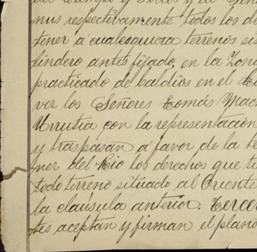 nus respectivamente todos los de
tener á cualesquiera terrenos si
lindero antes fijado, en la Zona
practicado de baldios en el
vez los Señores Tomás Mac
Urrutia con la representación
y traspasan a favor de la
ner del Rio los derechos que t
todo terreno situado al Oriente
la clausula anterior. Tercer
tes aceptan y firman el plano